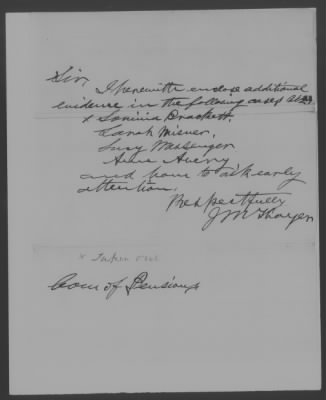 Sir,
I herewith enclose additional
evidence in the following cases
x Brackett,
Sarah Misner,
Lucy Messenger
Anne Avery
and have to ask early
attention.
Respectfully
J M Thayer
x Taken out
Com of Pensions